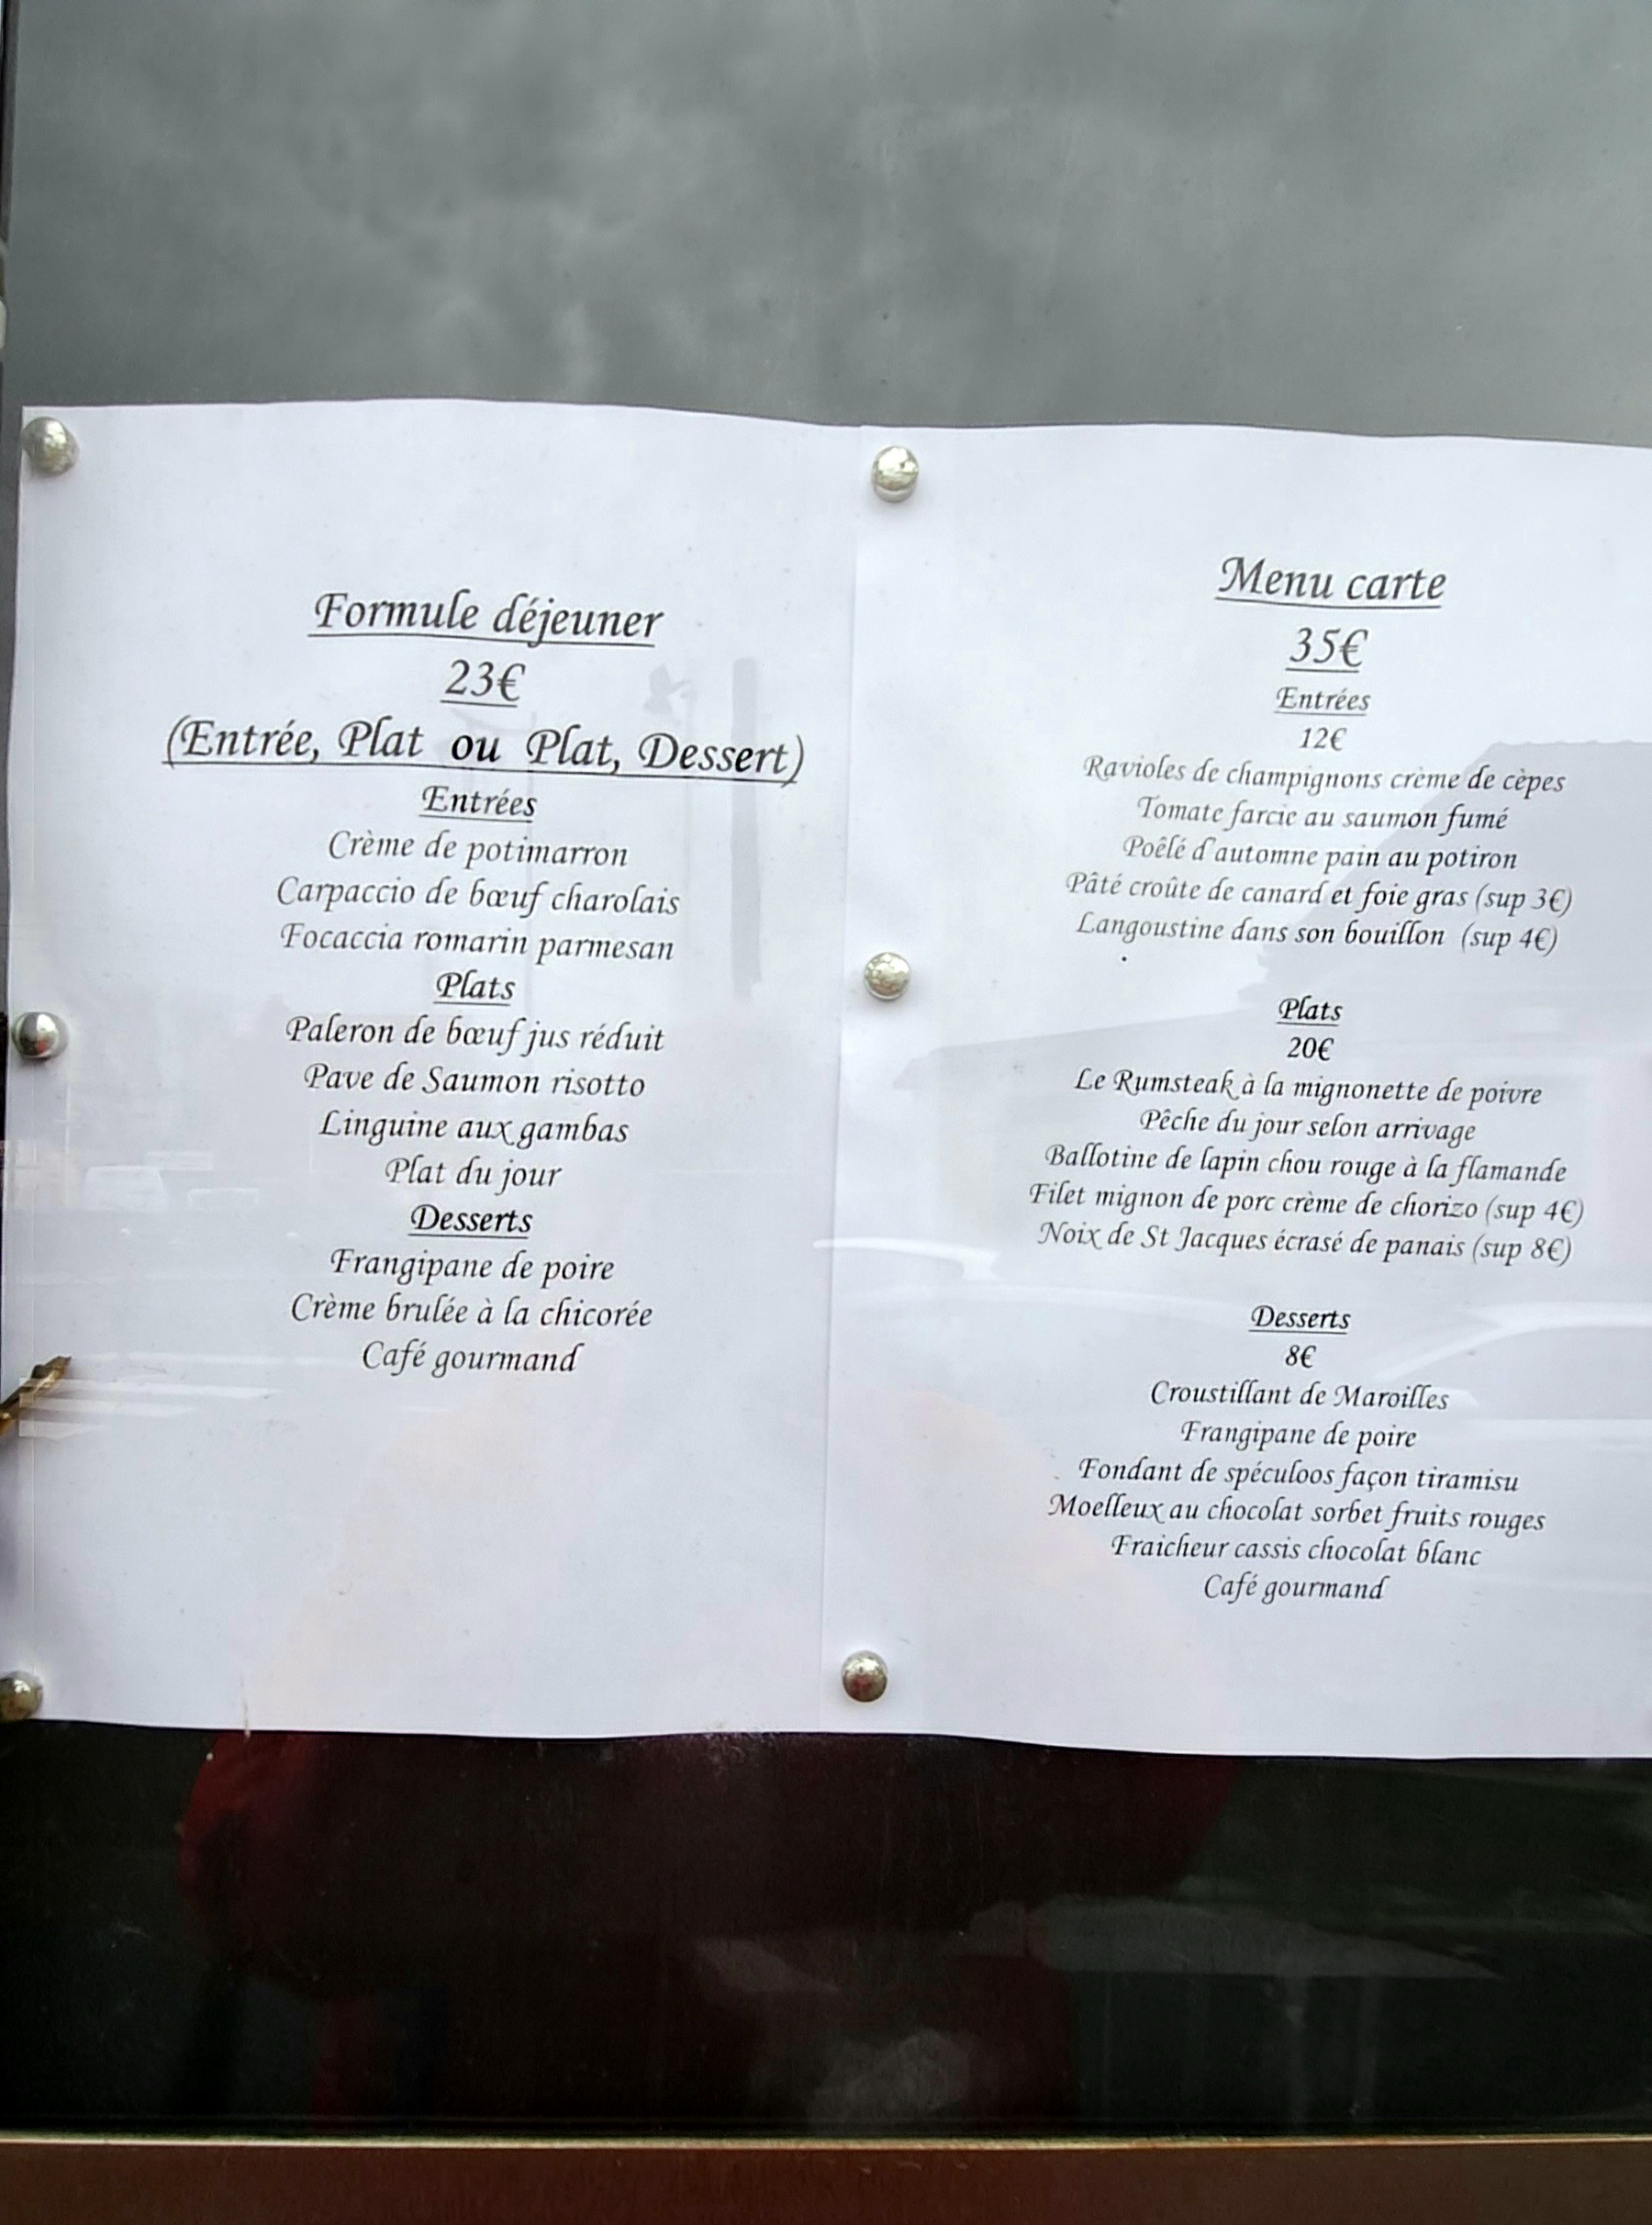 Formule déjeuner
23€
(Entrée, Plat ou Plat, Dessert)
Entrées
Crème de potimarron
Carpaccio de bœuf charolais
Focaccia romarin parmesan
Plats
Paleron de bœuf jus réduit
Pave de Saumon risotto
Linguine aux gambas
Plat du jour
Desserts
Frangipane de poire
Crème brulée à la chicorée
Café gourmand
Menu carte
35€
Entrées
12€
Ravioles de champignons crème de cèpes
Tomate farcie au saumon fumé
Poêlé d'automne pain au potiron
Pâté croûte de canard et foie gras (sup 3€)
Langoustine dans son bouillon (sup 4€)
Plats
20€
Le Rumsteak à la mignonette de poivre
Pêche du jour selon arrivage
Ballotine de lapin chou rouge à la flamande
Filet mignon de porc crème de chorizo (sup 4€)
Noix de St Jacques écrasé de panais (sup 8€)
Desserts
8€
Croustillant de Maroilles
Frangipane de poire
Fondant de spéculoos façon tiramisu
Moelleux au chocolat sorbet fruits rouges
Fraicheur cassis chocolat blanc
Café gourmand